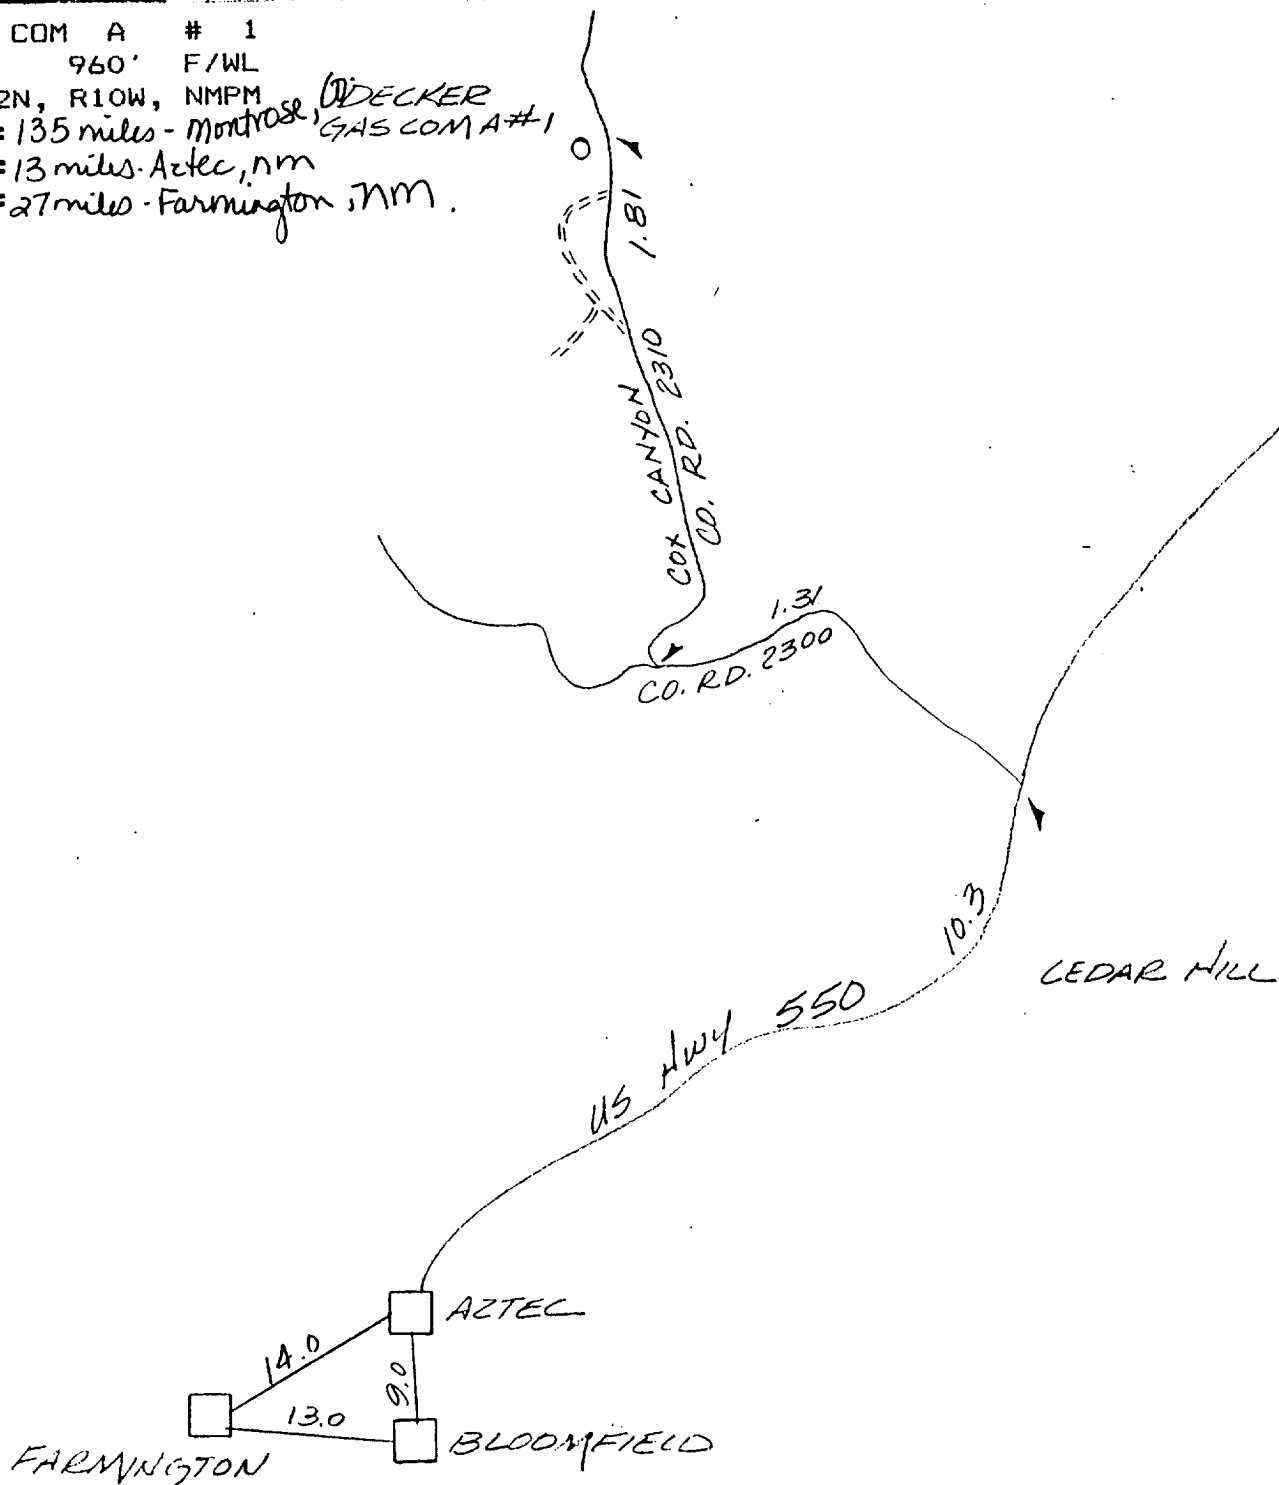 COM A # 1
960' F/WL
2N, R10W, NMPM
= 135 miles - Montrose,
= 13 miles - Aztec, nm
= 27 miles - Farmington, NM.
DECKER
GAS COM A #1
1.81
COX CANYON
CO. RD. 2310
1.31
CO. RD. 2300
10.3
CEDAR HILL
US HWY 550
AZTEC
14.0
9.0
13.0
BLOOMFIELD
FARMINGTON